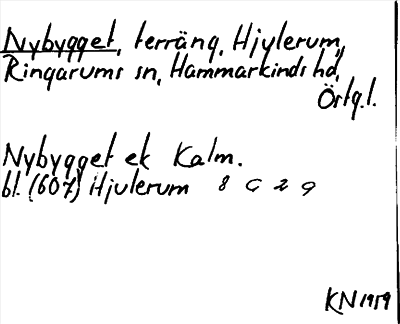 Nybygget, terräng, Hjulerum,
Ringarums sn, Hammarkinds hd,
Östg.l.
Nybygget ek Kalm.
bl. (607) Hjulerum 8 G 2 g
KN 1959